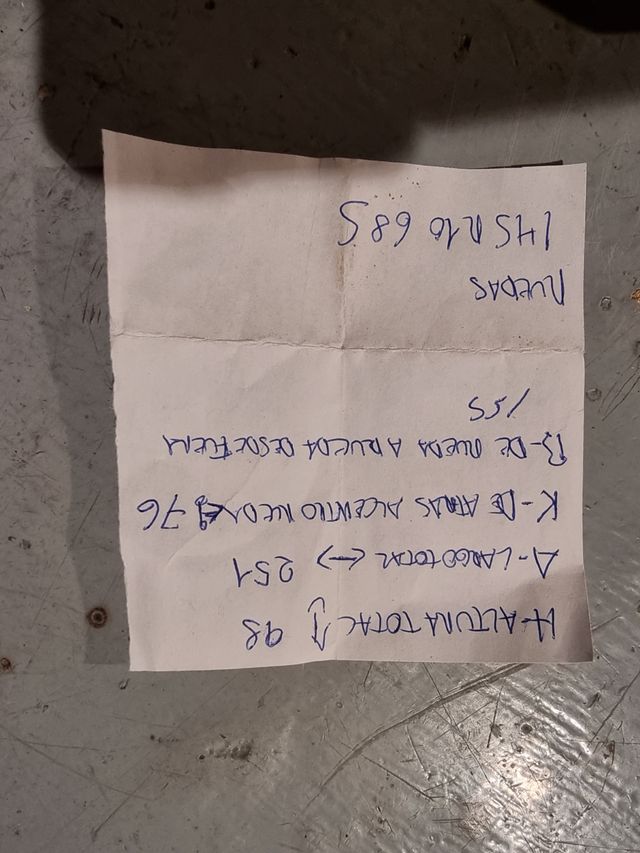 H-ALTURA TOTAL ↕ 98
A-LARGO TOTAL ↔ 251
K-DE ATRAS AL CENTRO RUEDA 76
B-DE RUEDA A RUEDA DESDE FUERA
155
RUEDAS
145 R10 68S